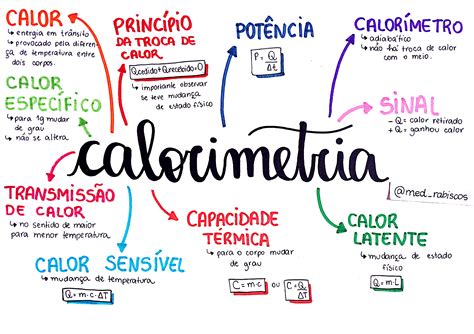 CALOR
↳ energia em trânsito
↳ provocado pela diferença
de temperatura entre
dois corpos.
PRINCÍPIO
DA TROCA DE
CALOR
Qcedido+Qrecebido=0
↳ importante observar
se teve mudança
de estado físico
POTÊNCIA
P = Q
Δt
CALORÍMETRO
↳ adiabático
↳ não há troca de calor
com o meio.
CALOR
ESPECÍFICO
↳ para 1g mudar
de grau
↳ não se altera
SINAL
- Q = calor retirado
+ Q = ganhou calor
calorimetria
@med_rabiscos
TRANSMISSÃO
DE CALOR
↳ no sentido de maior
para menor temperatura.
CALOR SENSÍVEL
↳ mudança de temperatura
Q = m·c·ΔT
CAPACIDADE
TÉRMICA
↳ para o corpo mudar
de grau
C = m·c ou C = Q
ΔT
CALOR
LATENTE
↳ mudança de estado
físico
Q = m·L